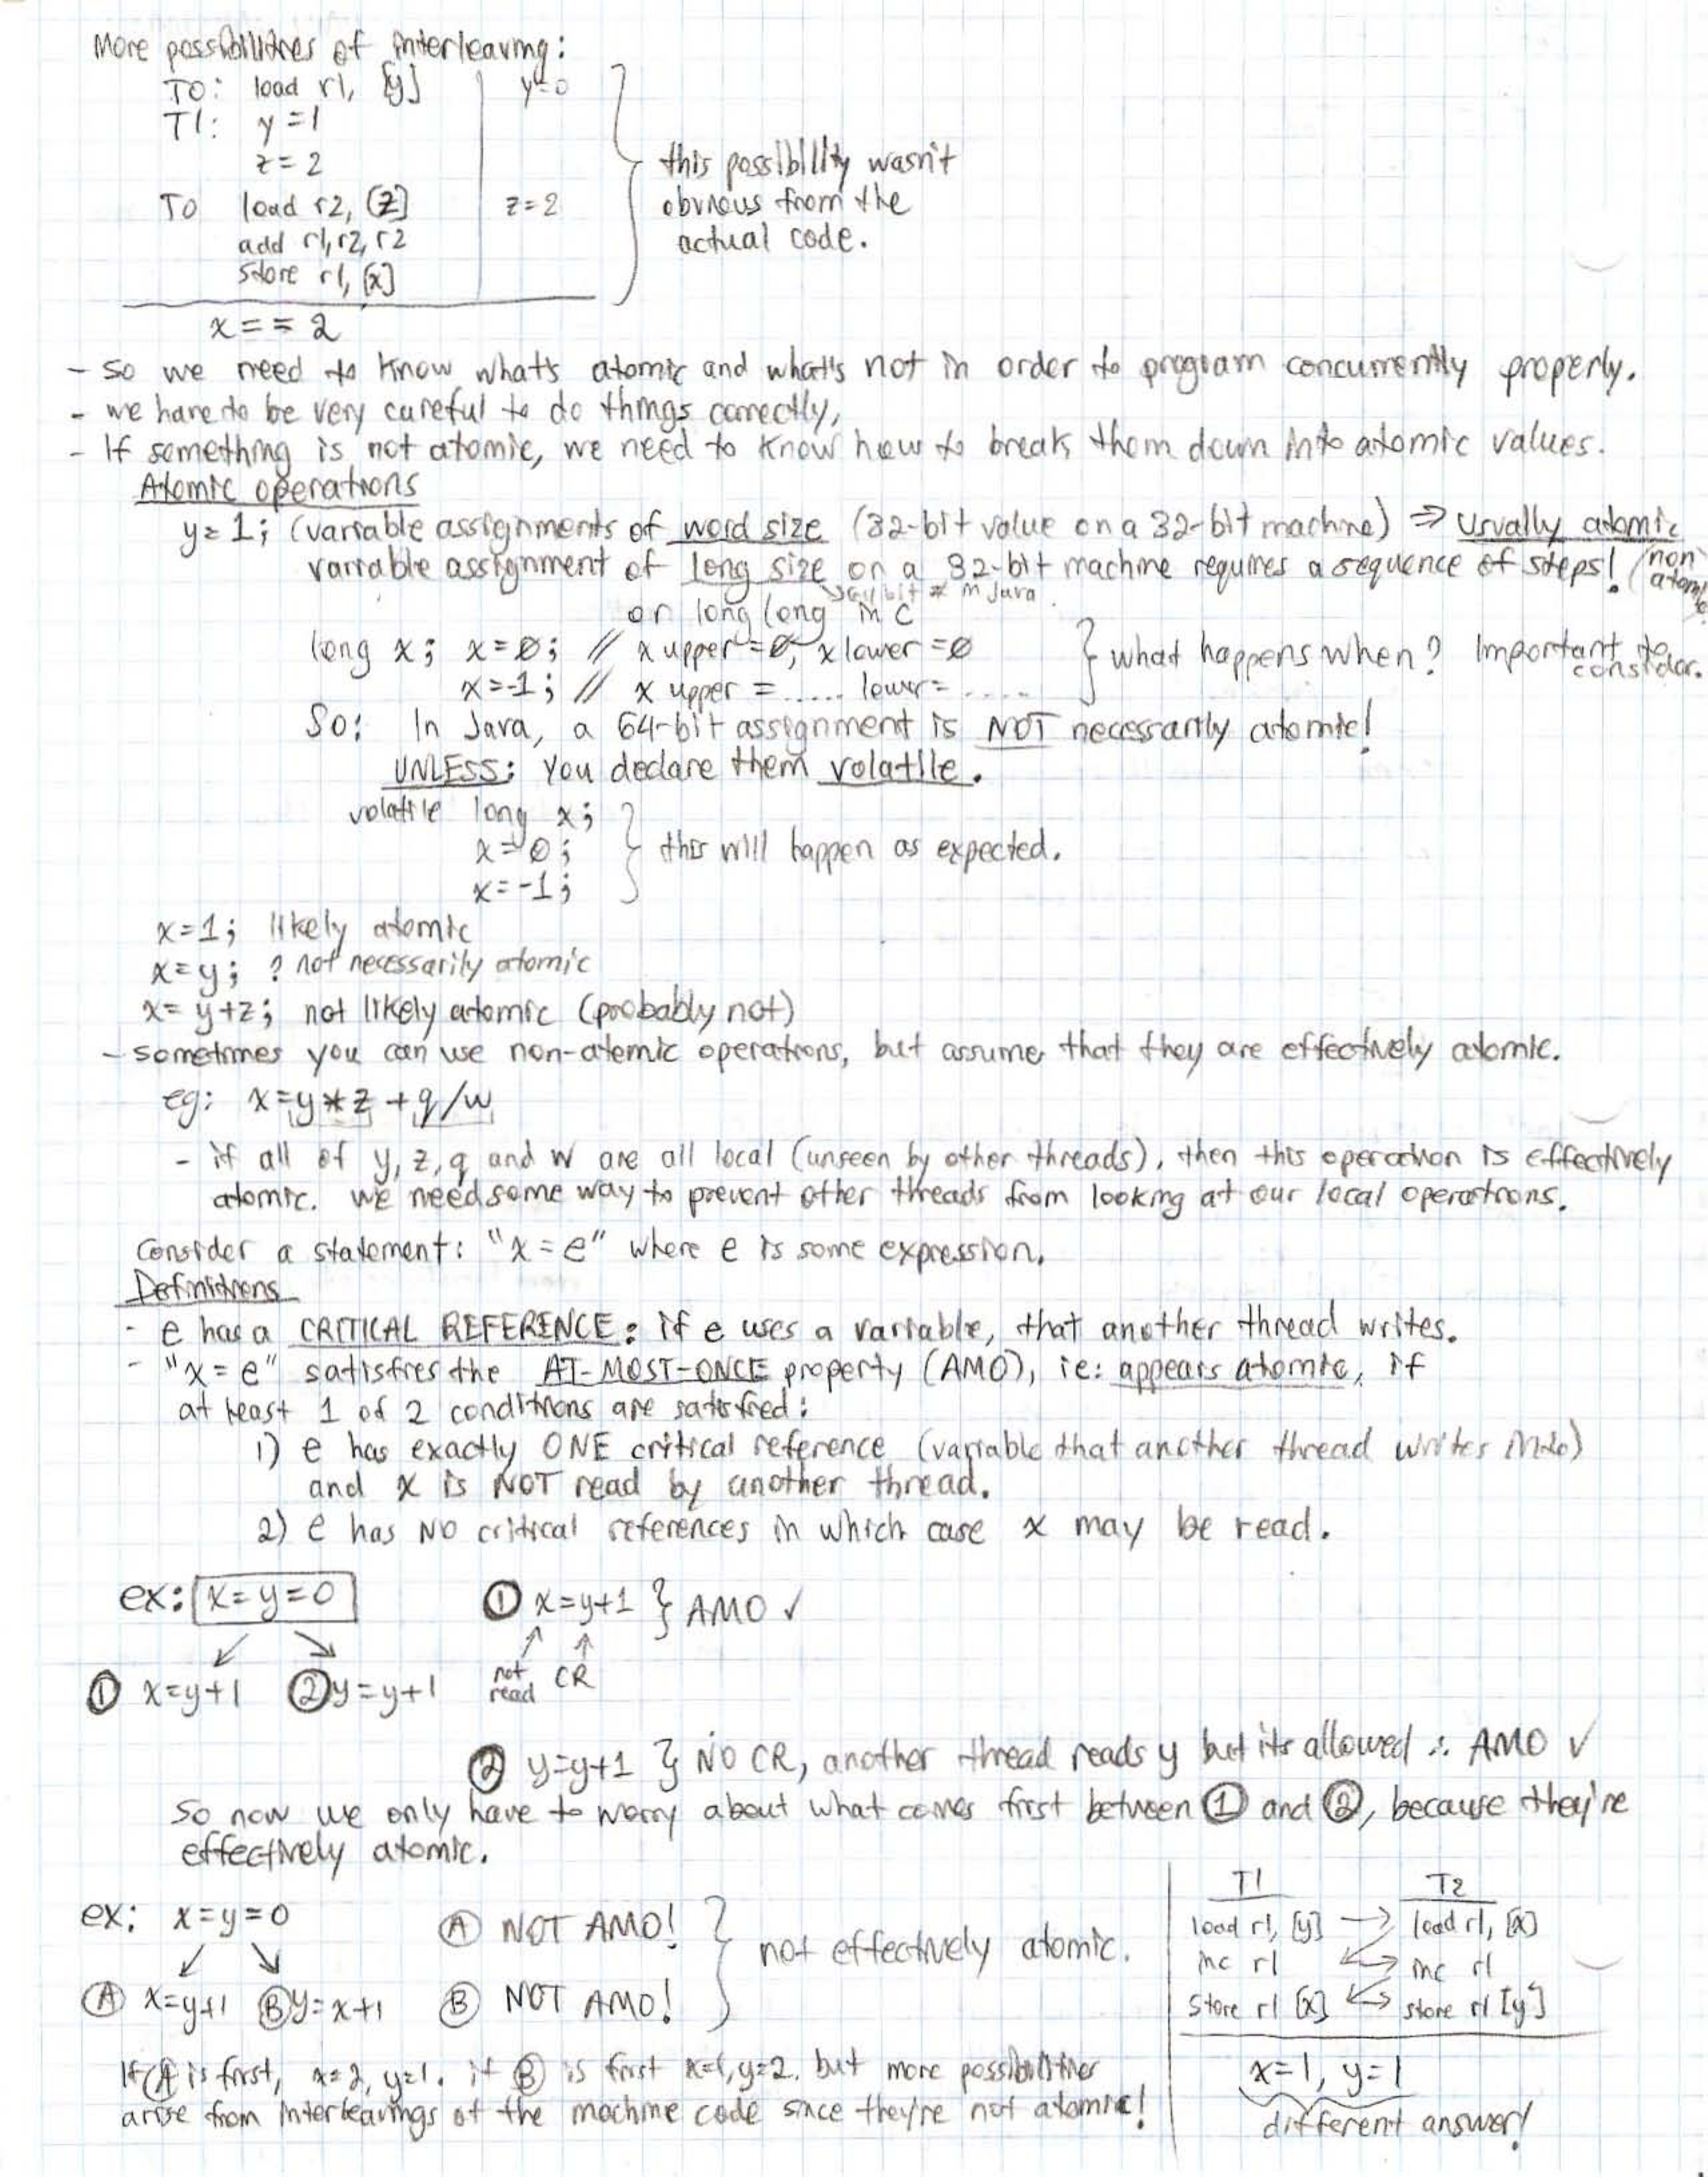 More possibilities of interleaving:
T0: load r1, [y] y=0
T1: y=1
z=2
T0 load r2, [z] z=2
add r1, r2, r2
store r1, [x]
x==2
this possibility wasn't
obvious from the
actual code.
- so we need to know what's atomic and what's not in order to program concurrently properly.
- we have to be very careful to do things correctly,
- If something is not atomic, we need to know how to break them down into atomic values.
Atomic operations
y=1; (variable assignments of word size (32-bit value on a 32-bit machine) ⇒ usually atomic
variable assignment of long size on a 32-bit machine requires a sequence of steps! (non atomic)
↘ 64 bit # in Java
or long long in C
long x; x=0; // x upper=0, x lower=0
x=-1; // x upper = ..... lower= .....
} what happens when? Important to consider.
So: In Java, a 64-bit assignment is NOT necessarily atomic!
UNLESS: You declare them volatile.
volatile long x;
x=0;
x=-1;
} this will happen as expected.
x=1; likely atomic
x=y; ? not necessarily atomic
x=y+z; not likely atomic (probably not)
- sometimes you can use non-atomic operations, but assume that they are effectively atomic.
eg: x=y*z+q/w
- if all of y, z, q and w are all local (unseen by other threads), then this operation is effectively
atomic. we need some way to prevent other threads from looking at our local operations.
Consider a statement: "x=e" where e is some expression.
Definitions
- e has a CRITICAL REFERENCE: if e uses a variable, that another thread writes.
- "x=e" satisfies the AT-MOST-ONCE property (AMO), ie: appears atomic, if
at least 1 of 2 conditions are satisfied:
1) e has exactly ONE critical reference (variable that another thread writes into)
and x is NOT read by another thread.
2) e has NO critical references in which case x may be read.
ex: x=y=0
① x=y+1 ② y=y+1
① x=y+1 } AMO ✓
not read CR
② y=y+1 } NO CR, another thread reads y but its allowed ∴ AMO ✓
so now we only have to worry about what comes first between ① and ②, because they're
effectively atomic.
ex: x=y=0
Ⓐ x=y+1 Ⓑ y=x+1
Ⓐ NOT AMO!
Ⓑ NOT AMO!
} not effectively atomic.
If Ⓐ is first, x=2, y=1. if Ⓑ is first x=1, y=2. but more possibilities
arise from interleavings of the machine code since they're not atomic!
T1 T2
load r1, [y] → load r1, [x]
inc r1 inc r1
store r1 [x] store r1 [y]
x=1, y=1
different answer!